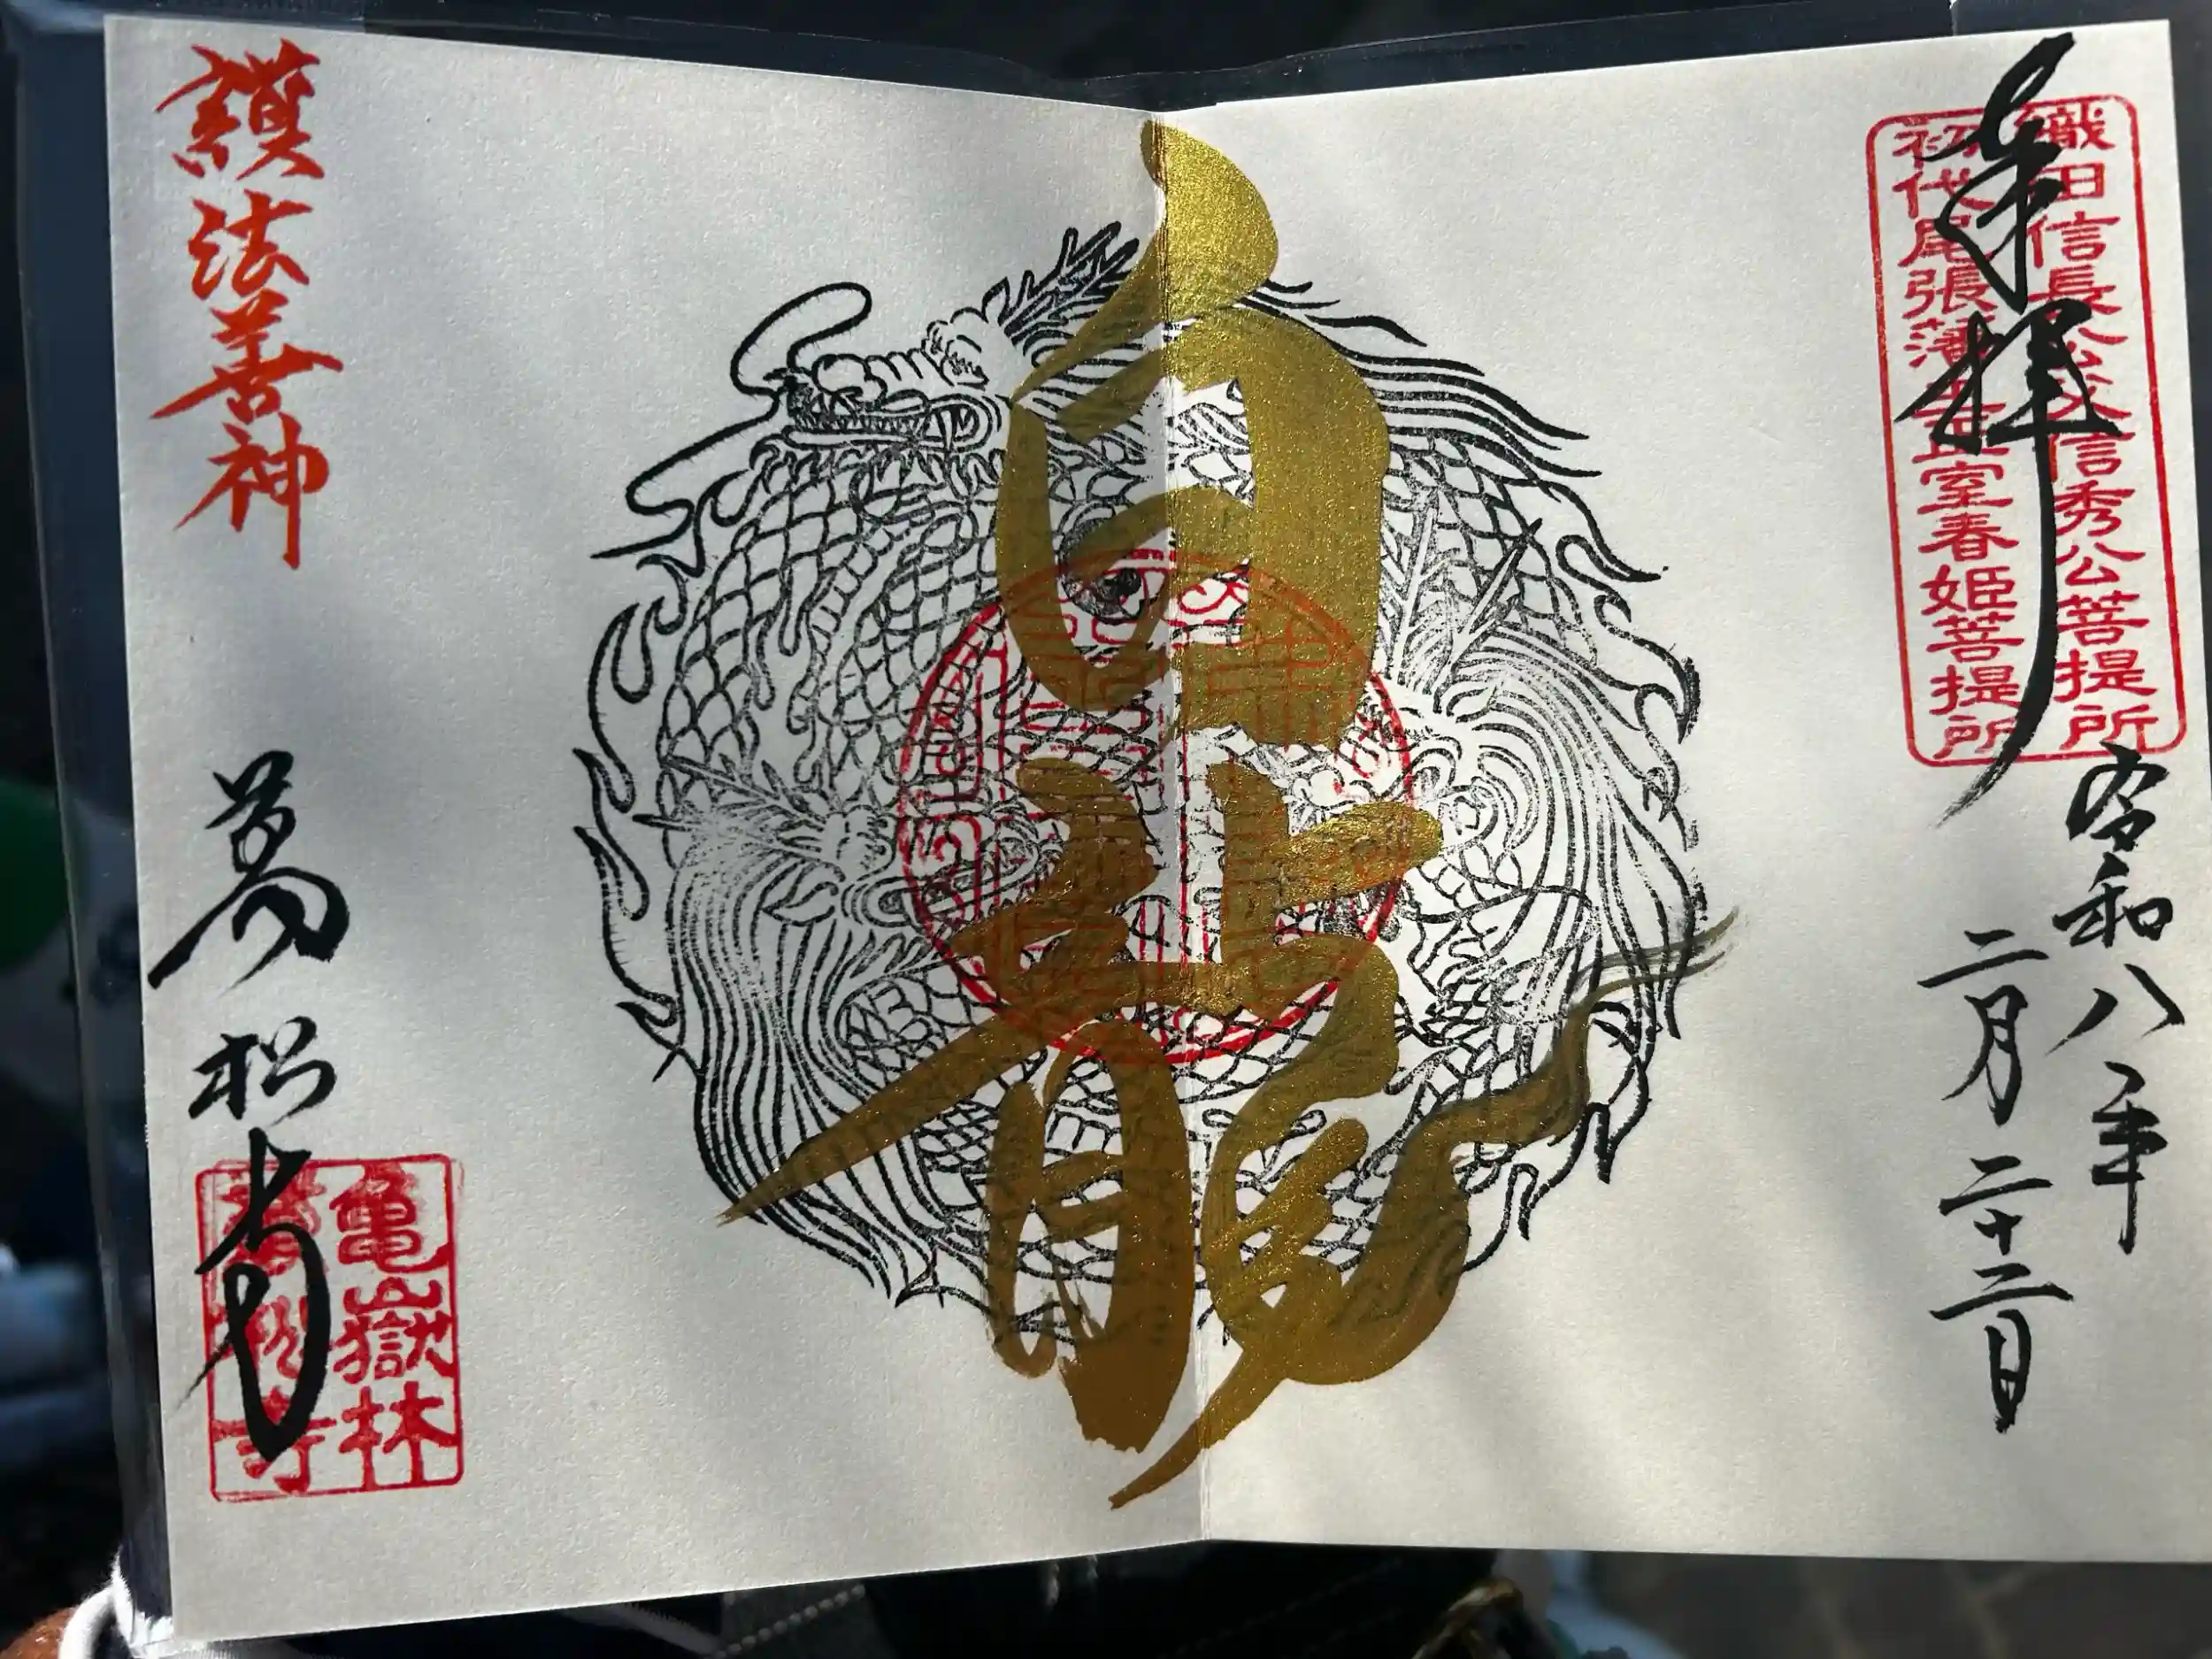 奉拝
織田信長公父信秀公菩提所
初代尾張藩主正室春姫菩提所
令和八年
二月二十三日
白龍
護法善神
萬松寺
亀嶽林
萬松寺